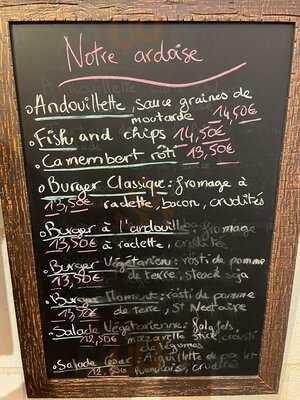 Notre ardoise
Andouillette, sauce graines de
moutarde 14,50€
Fish and chips 14,50€
Camembert rôti 13,50€
Burger Classique : fromage à
13,50€ raclette, bacon, crudités
Burger à l'andouille fromage
13,50€ à raclette, crudités
Burger Végétarien : rösti de pomme
13,50€ de terre, steack soja
Burger : rösti de pomme
13,50€ de terre, St Nectaire
Salade Végétarienne : falafels,
12,50€ mozzarella stick, crousti
de légumes
Salade César : Aiguillette de poulet
12,50€ crudités